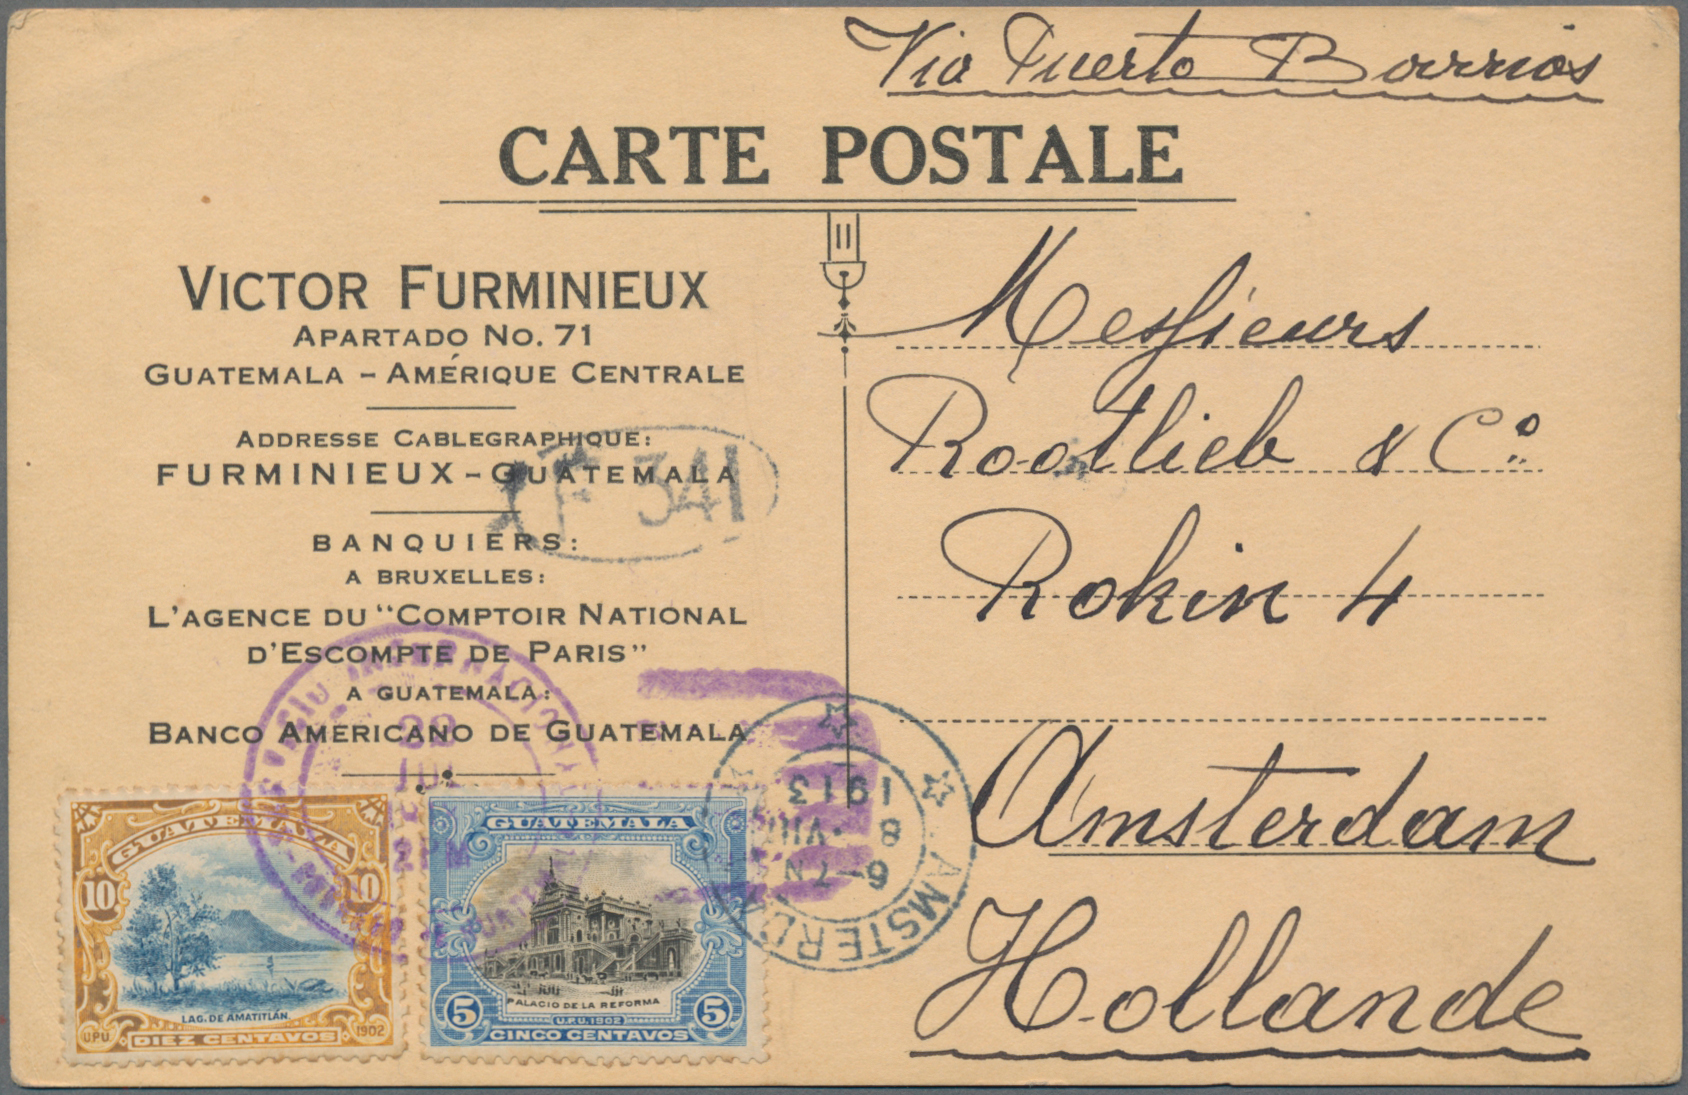 Via Puerto Barrios
CARTE POSTALE
VICTOR FURMINIEUX
APARTADO NO. 71
GUATEMALA – AMÉRIQUE CENTRALE
ADDRESSE CABLEGRAPHIQUE:
FURMINIEUX – GUATEMALA
F 341
BANQUIERS:
A BRUXELLES:
L'AGENCE DU "COMPTOIR NATIONAL
D'ESCOMPTE DE PARIS"
A GUATEMALA:
BANCO AMERICANO DE GUATEMALA
Messieurs
Rootlieb & Co.
Rokin 4
Amsterdam
Hollande
GUATEMALA
10 10
LAG. DE AMATITLÁN.
UPU. 1902
DIEZ CENTAVOS
GUATEMALA
PALACIO DE LA REFORMA
U.P.U. 1902
5 5
CINCO CENTAVOS
INTERNACIONAL
22
JUL
AMSTERDAM
6–7 N
8 VIII
1913